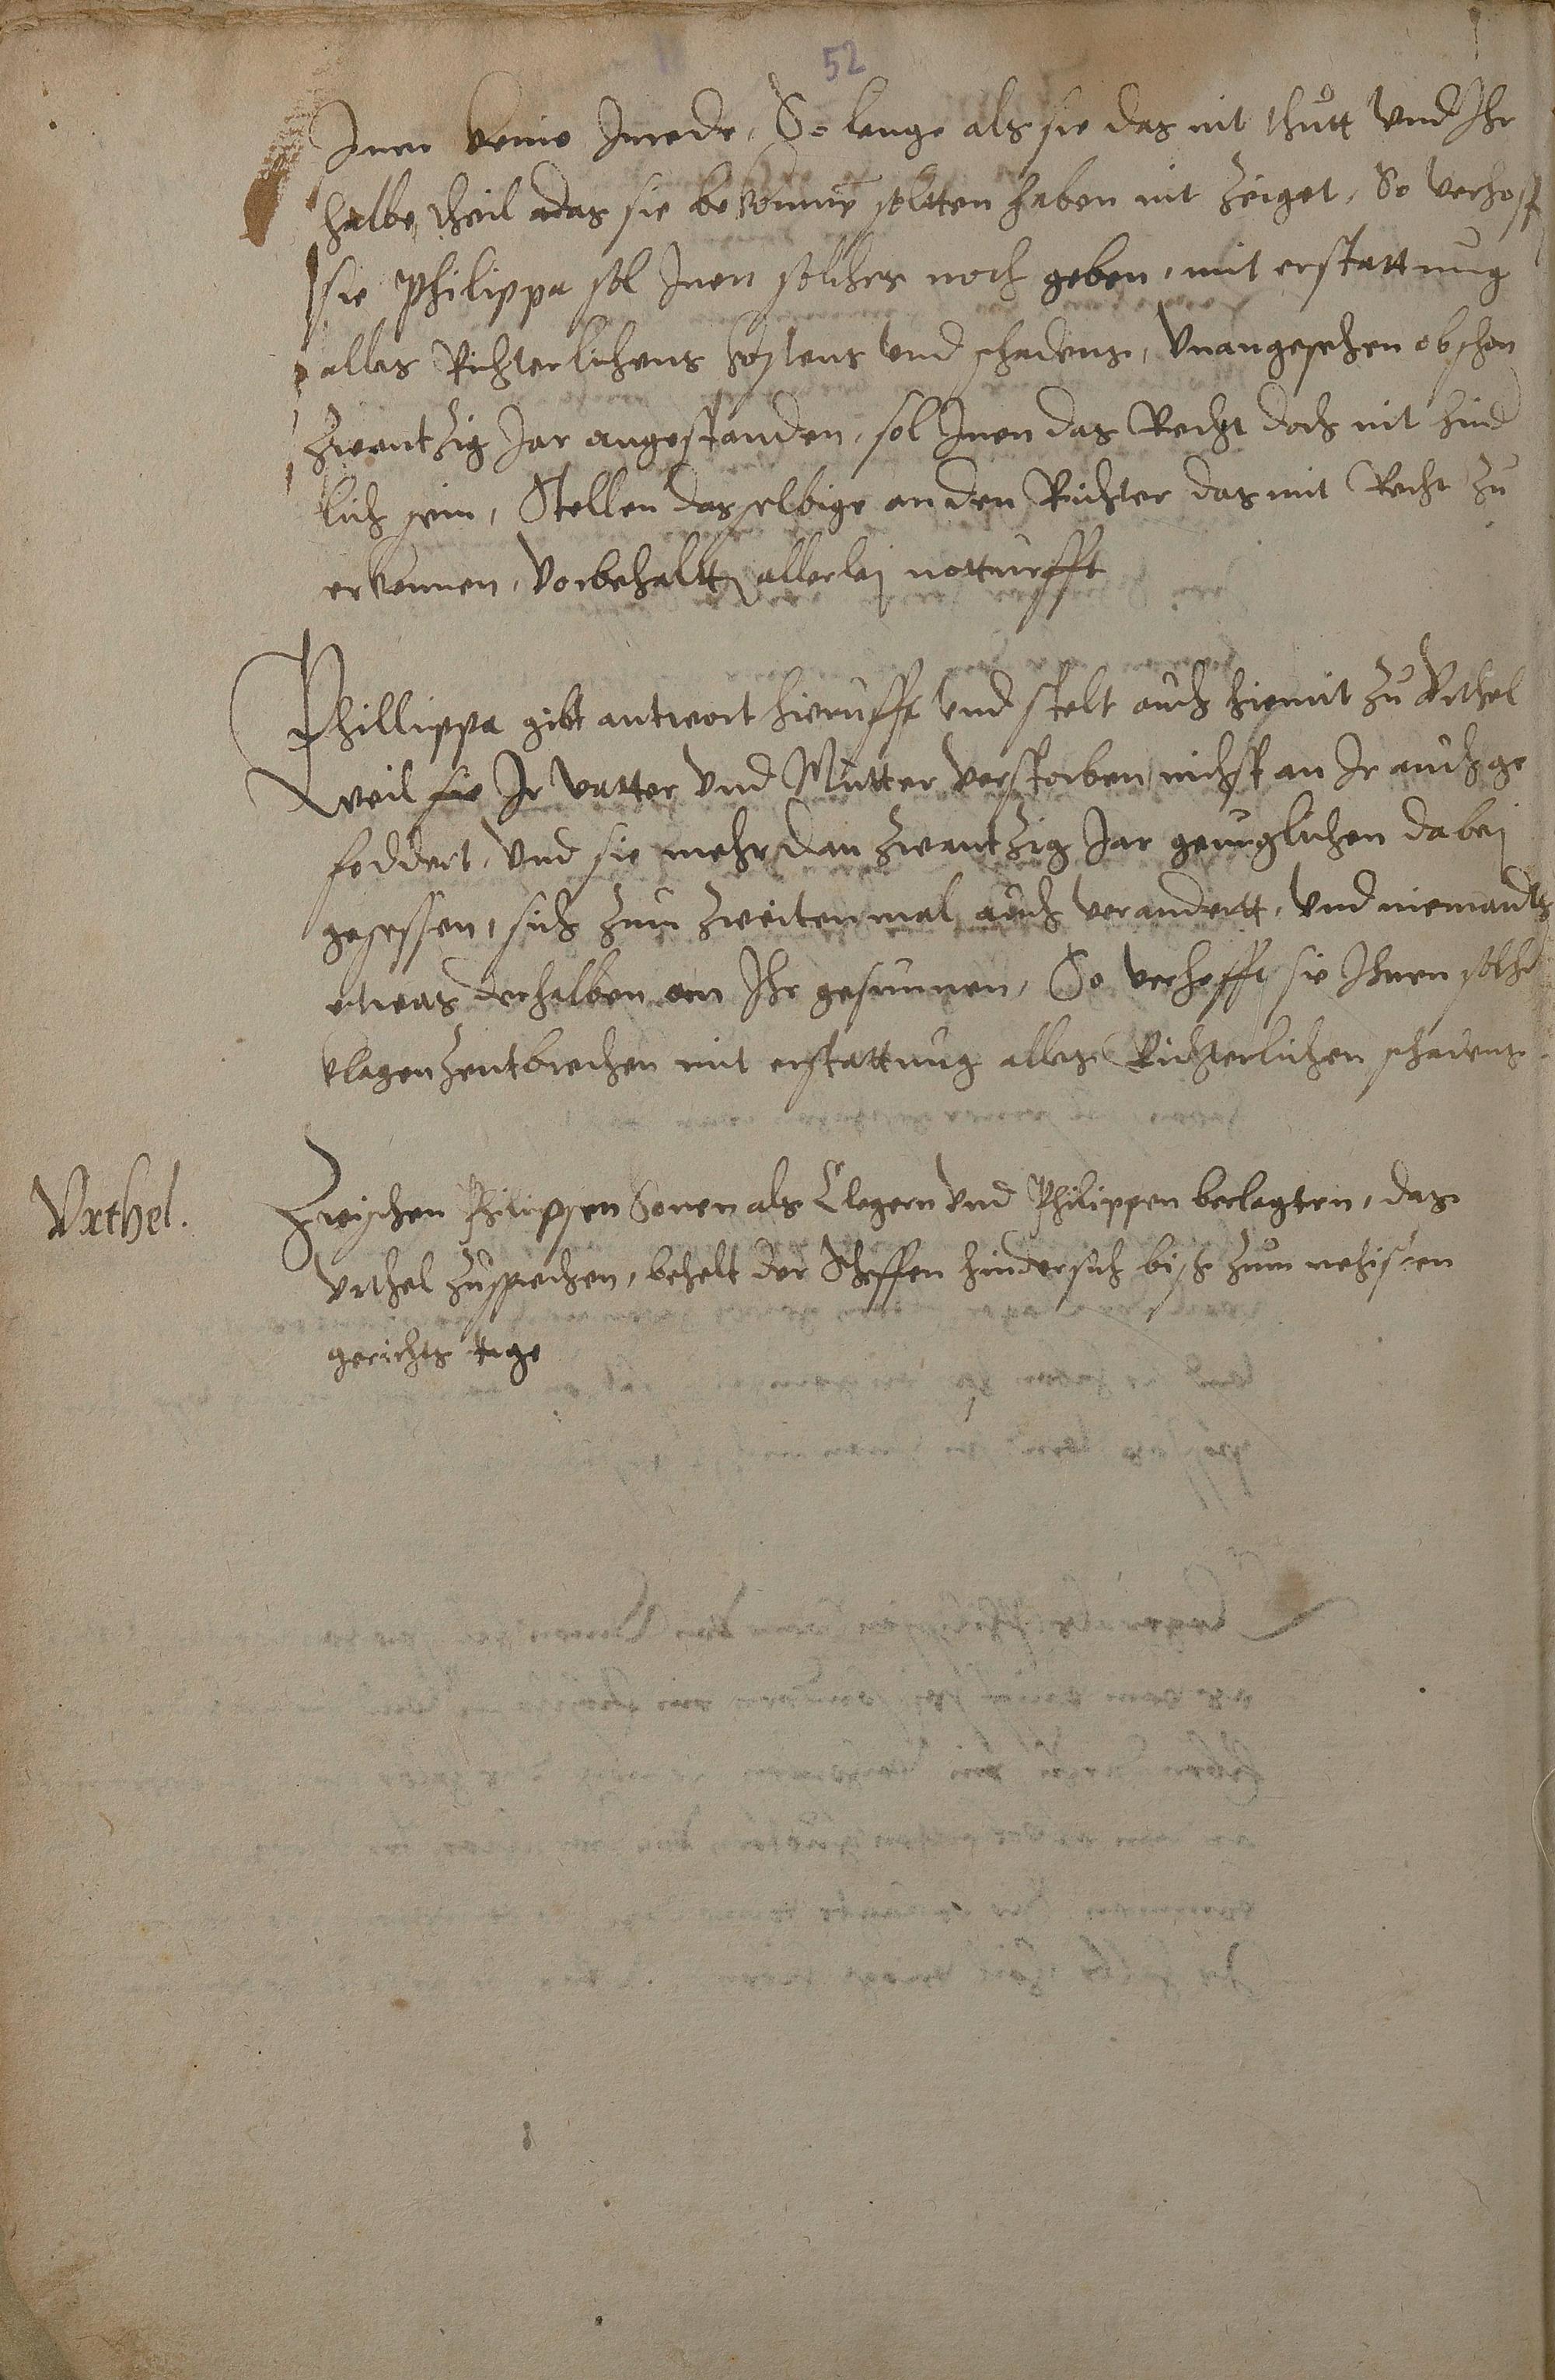 52
Inen keine Inrede, So lange als sie das nit thutt Vnd Ihr
halbe theil das sie bekommen soltten haben nit Zeiget, So verhoff
sie Philippa sol Inen solches noch geben, mit erstattung
alles Richterlichens Costens vnd schadens, Vnangesehen obschon
Zwantzig Jar angestanden, sol Inen das Recht doch nit hind
lich sein, Stellen dasselbige an den Richter das mit Recht Zu
erkennen, Vorbehaltt allerlej notturfft
Phillippa gibt antwort hieruff vnd stelt auch hiemit Zu Vrthel
Weil sie Ir Vatter Vnd Mutter Verstorben nichst an Ir auch ge
foddert, Vnd sie mehr dan Zwantzig Jar geruglichen dabej
gesessen, sich Zum Zweiten mal auch verandertt, Vnd niemandts
etwas derhalben an Ihr gesunnen, So Verhofft sie Ihnen solche
klagen Zentbrechen mit erstattung alles Richterlichen schadens
Vrthel.
Zwischen Philipsen Sonen als Clegern Vnd Philippen beclagten, das
Vrthel Zusprechen, behelt der Scheffen hindersich bisz Zum nehisten
gerichts tage